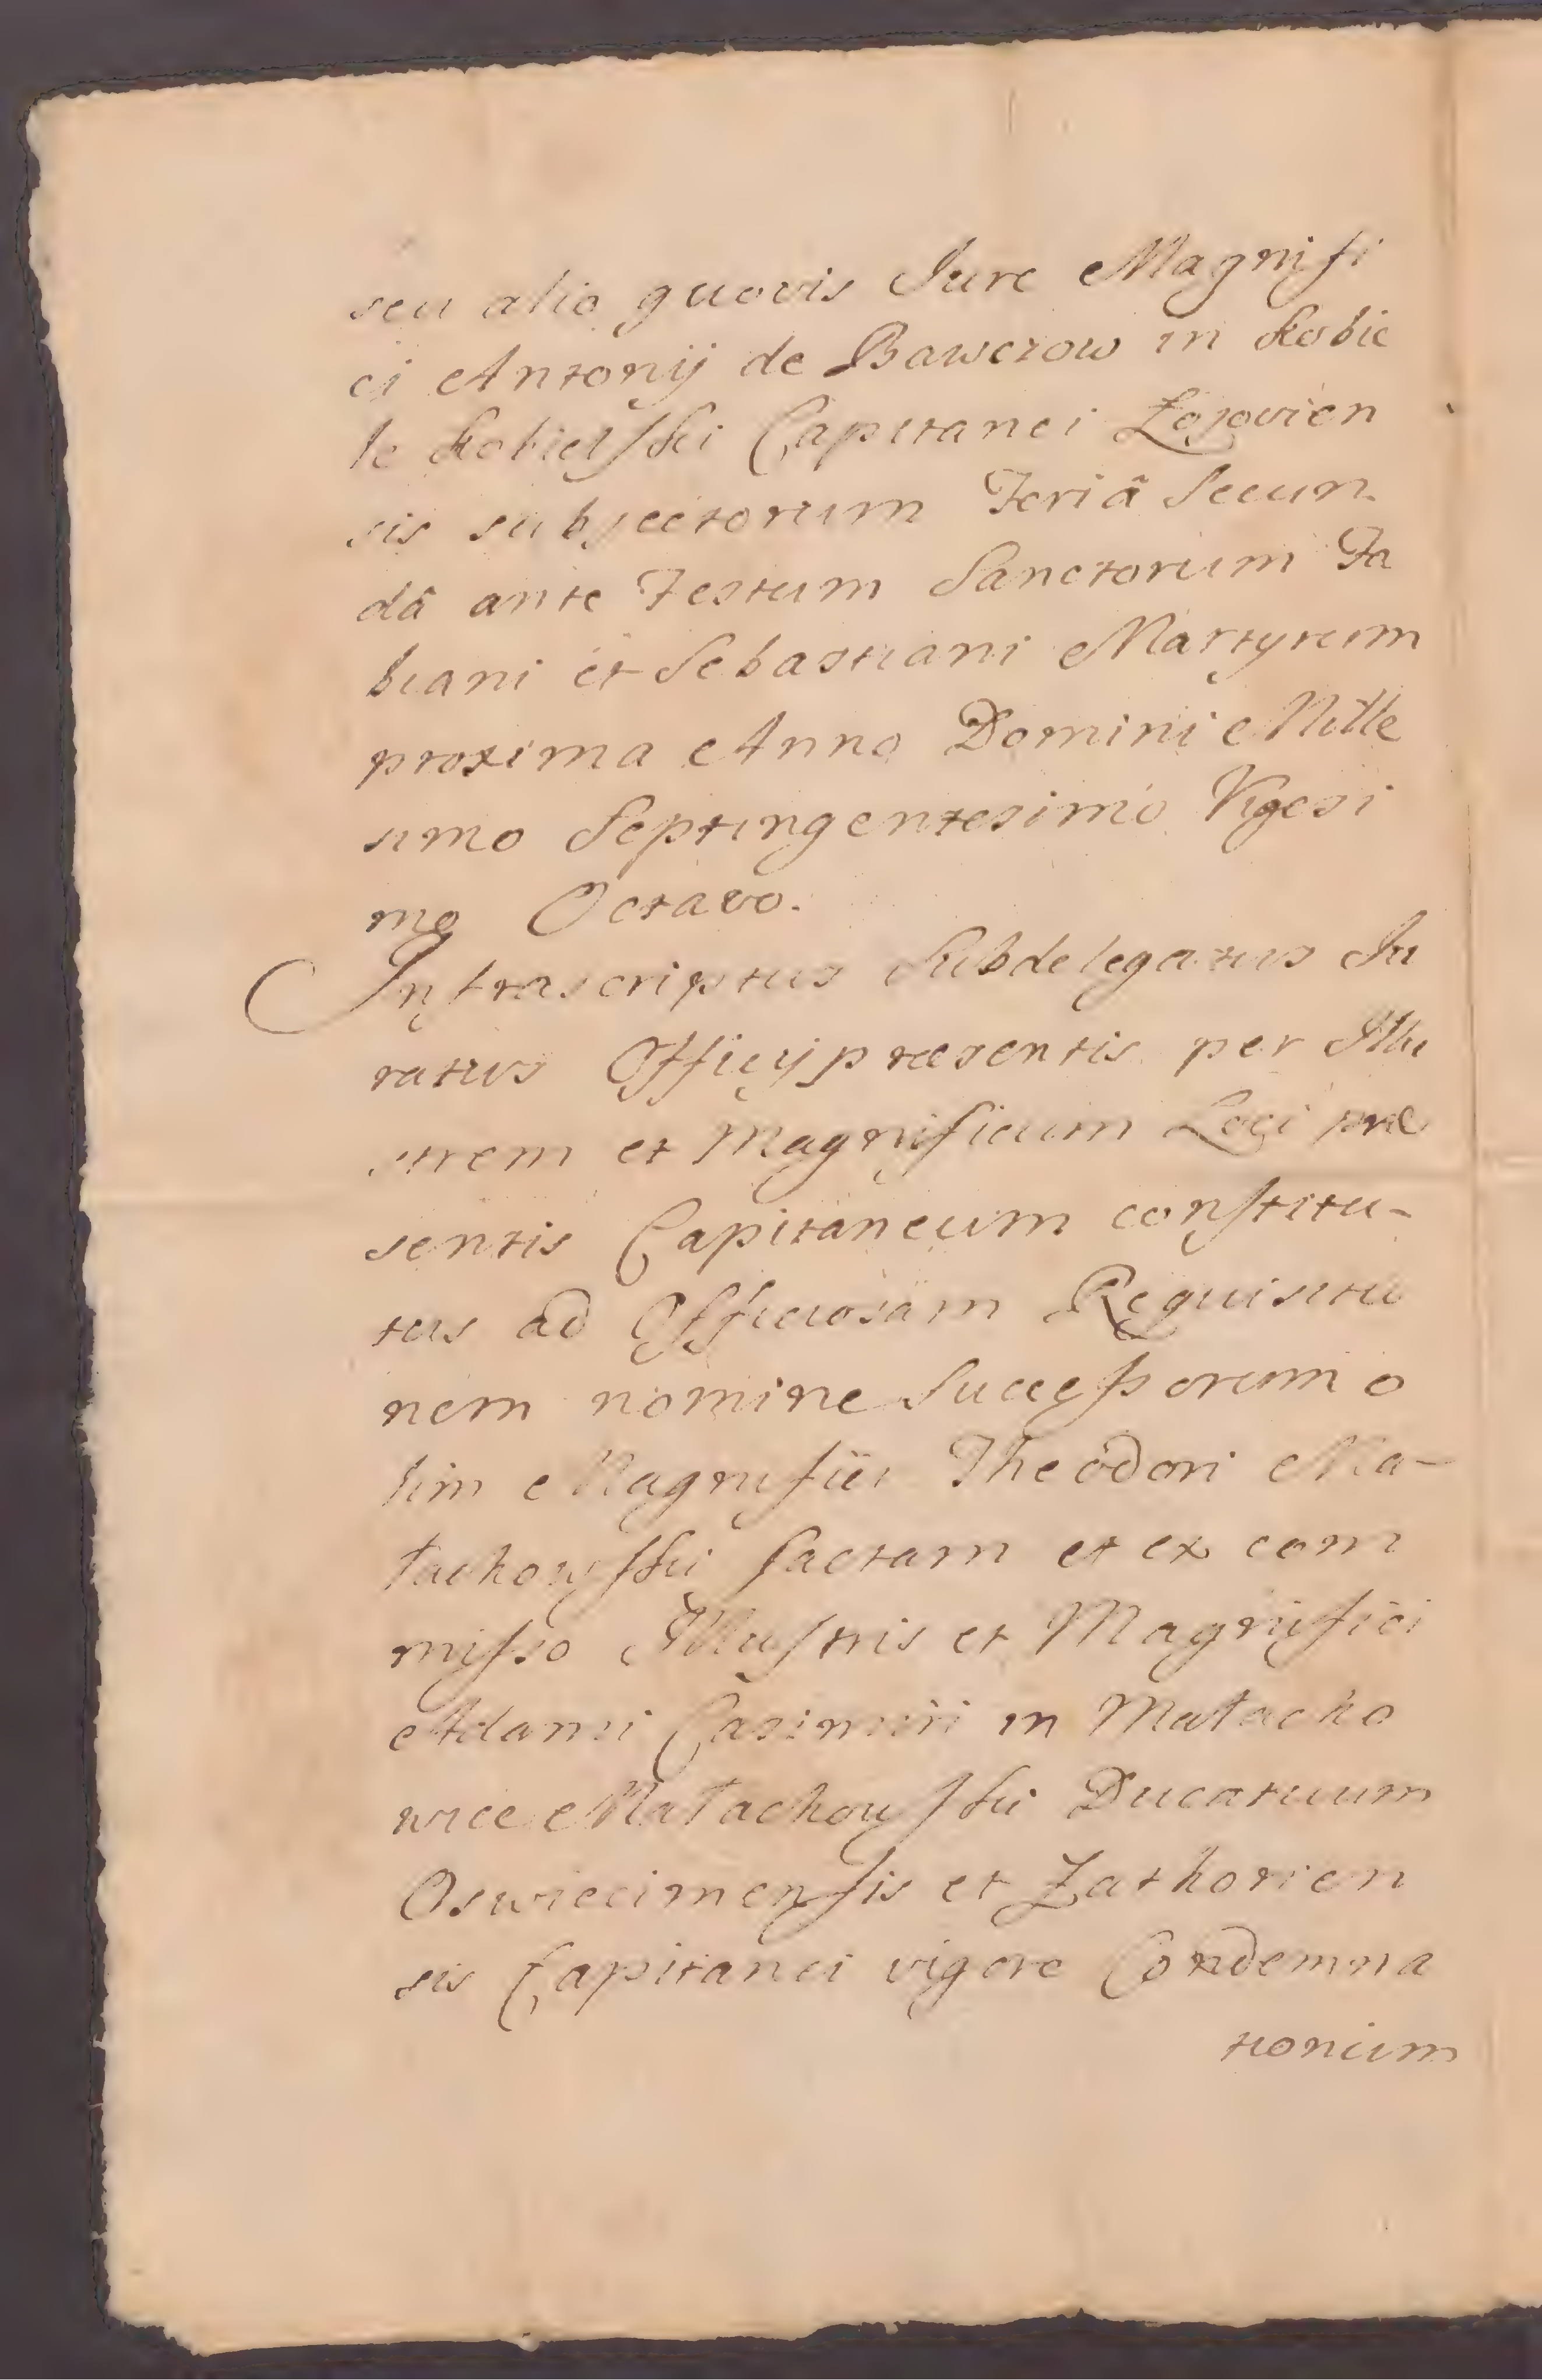 seu alio quovis Jure Magnifi
ci Antonij de Bawczow in Kobie
le Kobielski Capitanei Łojovien
sis subjectorum Feriâ Secun
dâ ante Festum Sanctorum Fa
biani et Sebastiani Martyrum
proxima Anno Domini Mille
simo Septingentesimo Vigesi
mo Octavo.
Infrascriptus Subdelegatus Ju
ratus Officij præsentis per Illu
strem et Magnificum Loci præ
sentis Capitaneum constitu-
tus ad Officiosam Requisitio
nem nomine Successorum o
lim Magnifici Theodori Ma-
łachowski factam et ex com
misso Illustris et Magnifici
Adami Casimiri in Małacho
wice Małachowski Ducatuum
Oswiecimensis et Zathorien
sis Capitanei vigore Condemna
tionum